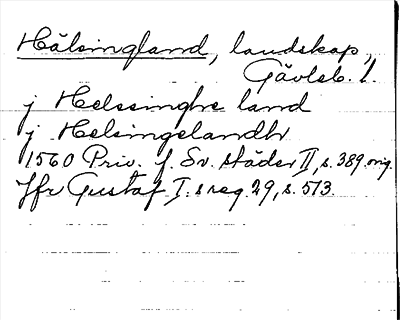 Hälsingland, landskap,
Gävleb. l.
j Helssinghe land
j Helsingelandh
1560 Priv. f. Sv. städer II, s. 389 orig.
Jfr Gustaf I:s reg. 29, s. 513.